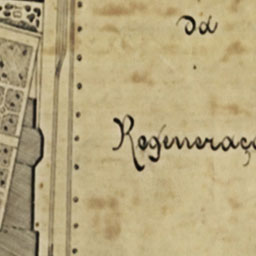 da
Regeneraç